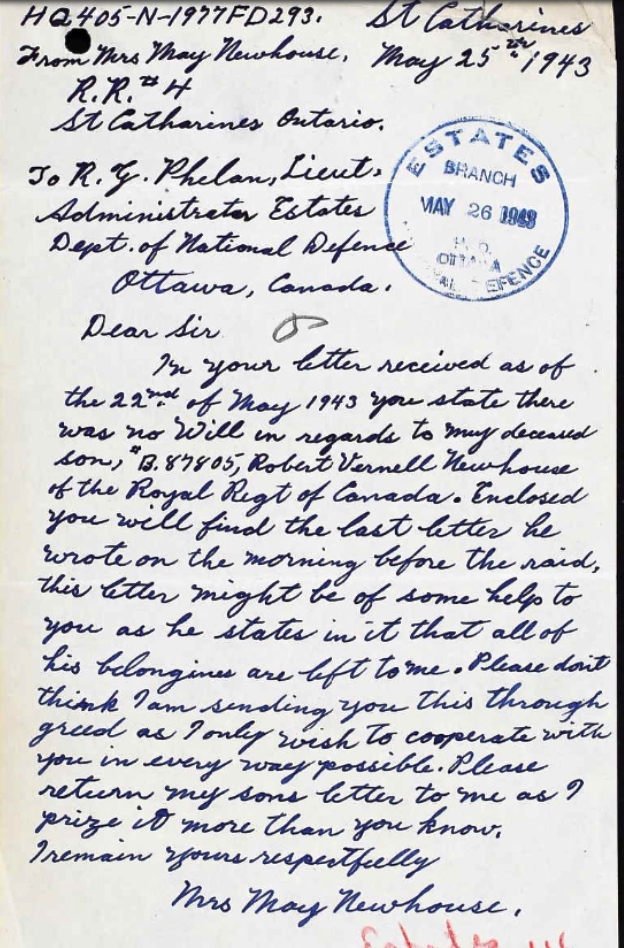 HQ 405-N-1977FD293. St Catharines
From Mrs May Newhouse. May 25th 1943
R.R. # 4
St Catharines Ontario.
To R. G. Phelan, Lieut,
Administrator Estates
Dept. of National Defence
Ottawa, Canada.
ESTATES
BRANCH
MAY 26 1943
OTTAWA
DEFENCE
Dear Sir
In your letter received as of
the 22nd of May 1943 you state there
was no Will in regards to my deceased
son, "B.87805, Robert Vernell Newhouse
of the Royal Regt of Canada. Enclosed
you will find the last letter he
wrote on the morning before the raid,
this letter might be of some help to
you as he states in it that all of
his belongines are left to me. Please don't
think I am sending you this through
greed as I only wish to cooperate with
you in every way possible. Please
return my sons letter to me as I
prize it more than you know.
I remain yours respectfully
Mrs May Newhouse.